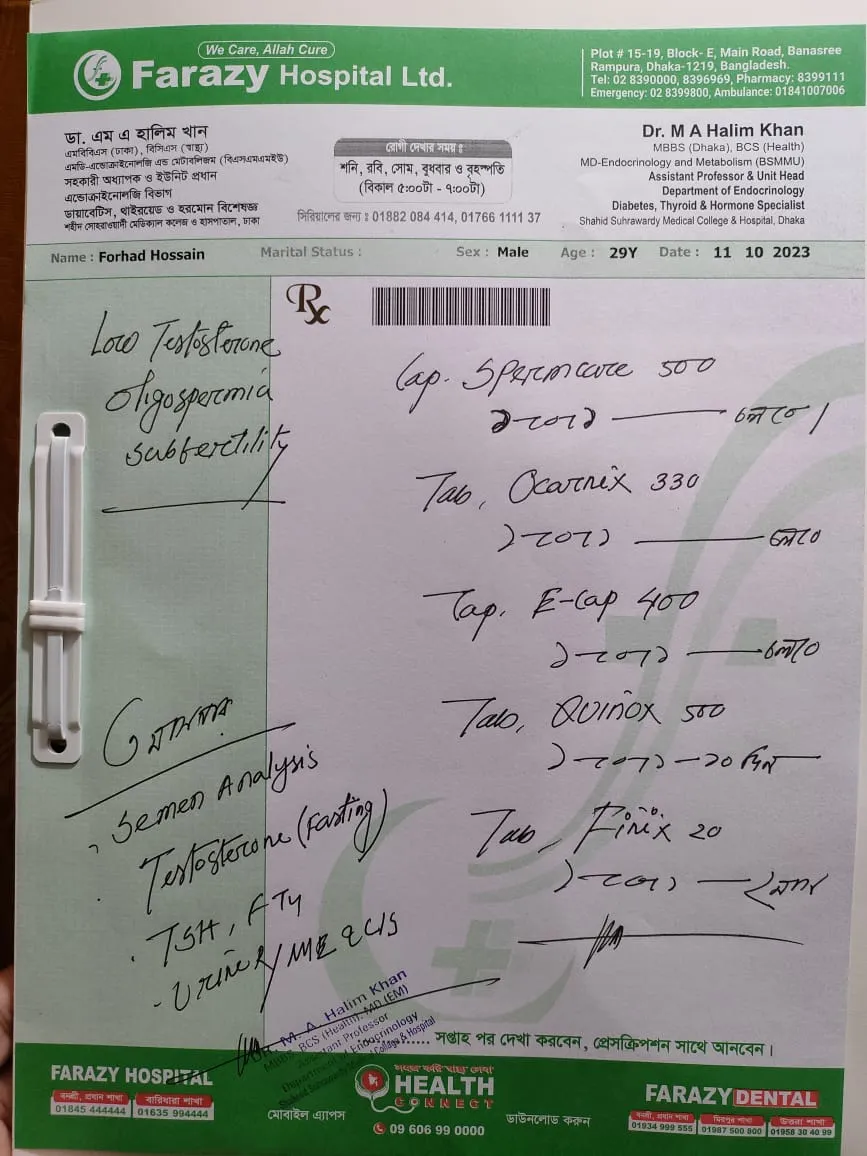 We Care, Allah Cure
Farazy Hospital Ltd.
Plot # 15-19, Block- E, Main Road, Banasree
Rampura, Dhaka-1219, Bangladesh.
Tel: 02 8390000, 8396969, Pharmacy: 8399111
Emergency: 02 8399800, Ambulance: 01841007006
ডা. এম এ হালিম খান
এমবিবিএস (ঢাকা), বিসিএস (স্বাস্থ্য)
এমডি-এন্ডোক্রাইনোলজি এন্ড মেটাবলিজম (বিএসএমএমইউ)
সহকারী অধ্যাপক ও ইউনিট প্রধান
এন্ডোক্রাইনোলজি বিভাগ
ডায়াবেটিস, থাইরয়েড ও হরমোন বিশেষজ্ঞ
শহীদ সোহরাওয়ার্দী মেডিকেল কলেজ ও হাসপাতাল, ঢাকা
রোগী দেখার সময় :
শনি, রবি, সোম, বুধবার ও বৃহস্পতি
(বিকাল ৫:০০টা - ৭:০০টা)
সিরিয়ালের জন্য : 01882 084 414, 01766 1111 37
Dr. M A Halim Khan
MBBS (Dhaka), BCS (Health)
MD-Endocrinology and Metabolism (BSMMU)
Assistant Professor & Unit Head
Department of Endocrinology
Diabetes, Thyroid & Hormone Specialist
Shahid Suhrawardy Medical College & Hospital, Dhaka
Name : Forhad Hossain Marital Status : Sex : Male Age : 29Y Date : 11 10 2023
Low Testosterone
Oligospermia
Subfertility
Rx
Cap. Spermcare 500
১-০-১ — চলবে।
Tab, Ocarnix 330
১-০-১ — চলবে
Cap. E-Cap 400
১-০-১ — চলবে
Tab, Quinox 500
১-০-১ — ১০ দিন
Tab, Finix 20
১-০-১ — ২ মাস
৩ মাস পর
Semen Analysis
Testosterone (Fasting)
TSH, FT4
Urine R/ME & C/S
Dr. M. A. Halim Khan
MBBS, BCS (Health), MD (EM)
Assistant Professor
Department of Endocrinology
Shaheed Suhrawardy Medical College & Hospital
...... সপ্তাহ পর দেখা করবেন, প্রেসক্রিপশন সাথে আনবেন।
FARAZY HOSPITAL
বনশ্রী, প্রধান শাখা
01845 444444
বারিধারা শাখা
01635 994444
মোবাইল এ্যাপস
সহজ করি স্বাস্থ্য সেবা
HEALTH
CONNECT
09 606 99 0000
ডাউনলোড করুন
FARAZY DENTAL
বনশ্রী, প্রধান শাখা
01934 999 555
মিরপুর শাখা
01987 500 800
উত্তরা শাখা
01958 30 40 99